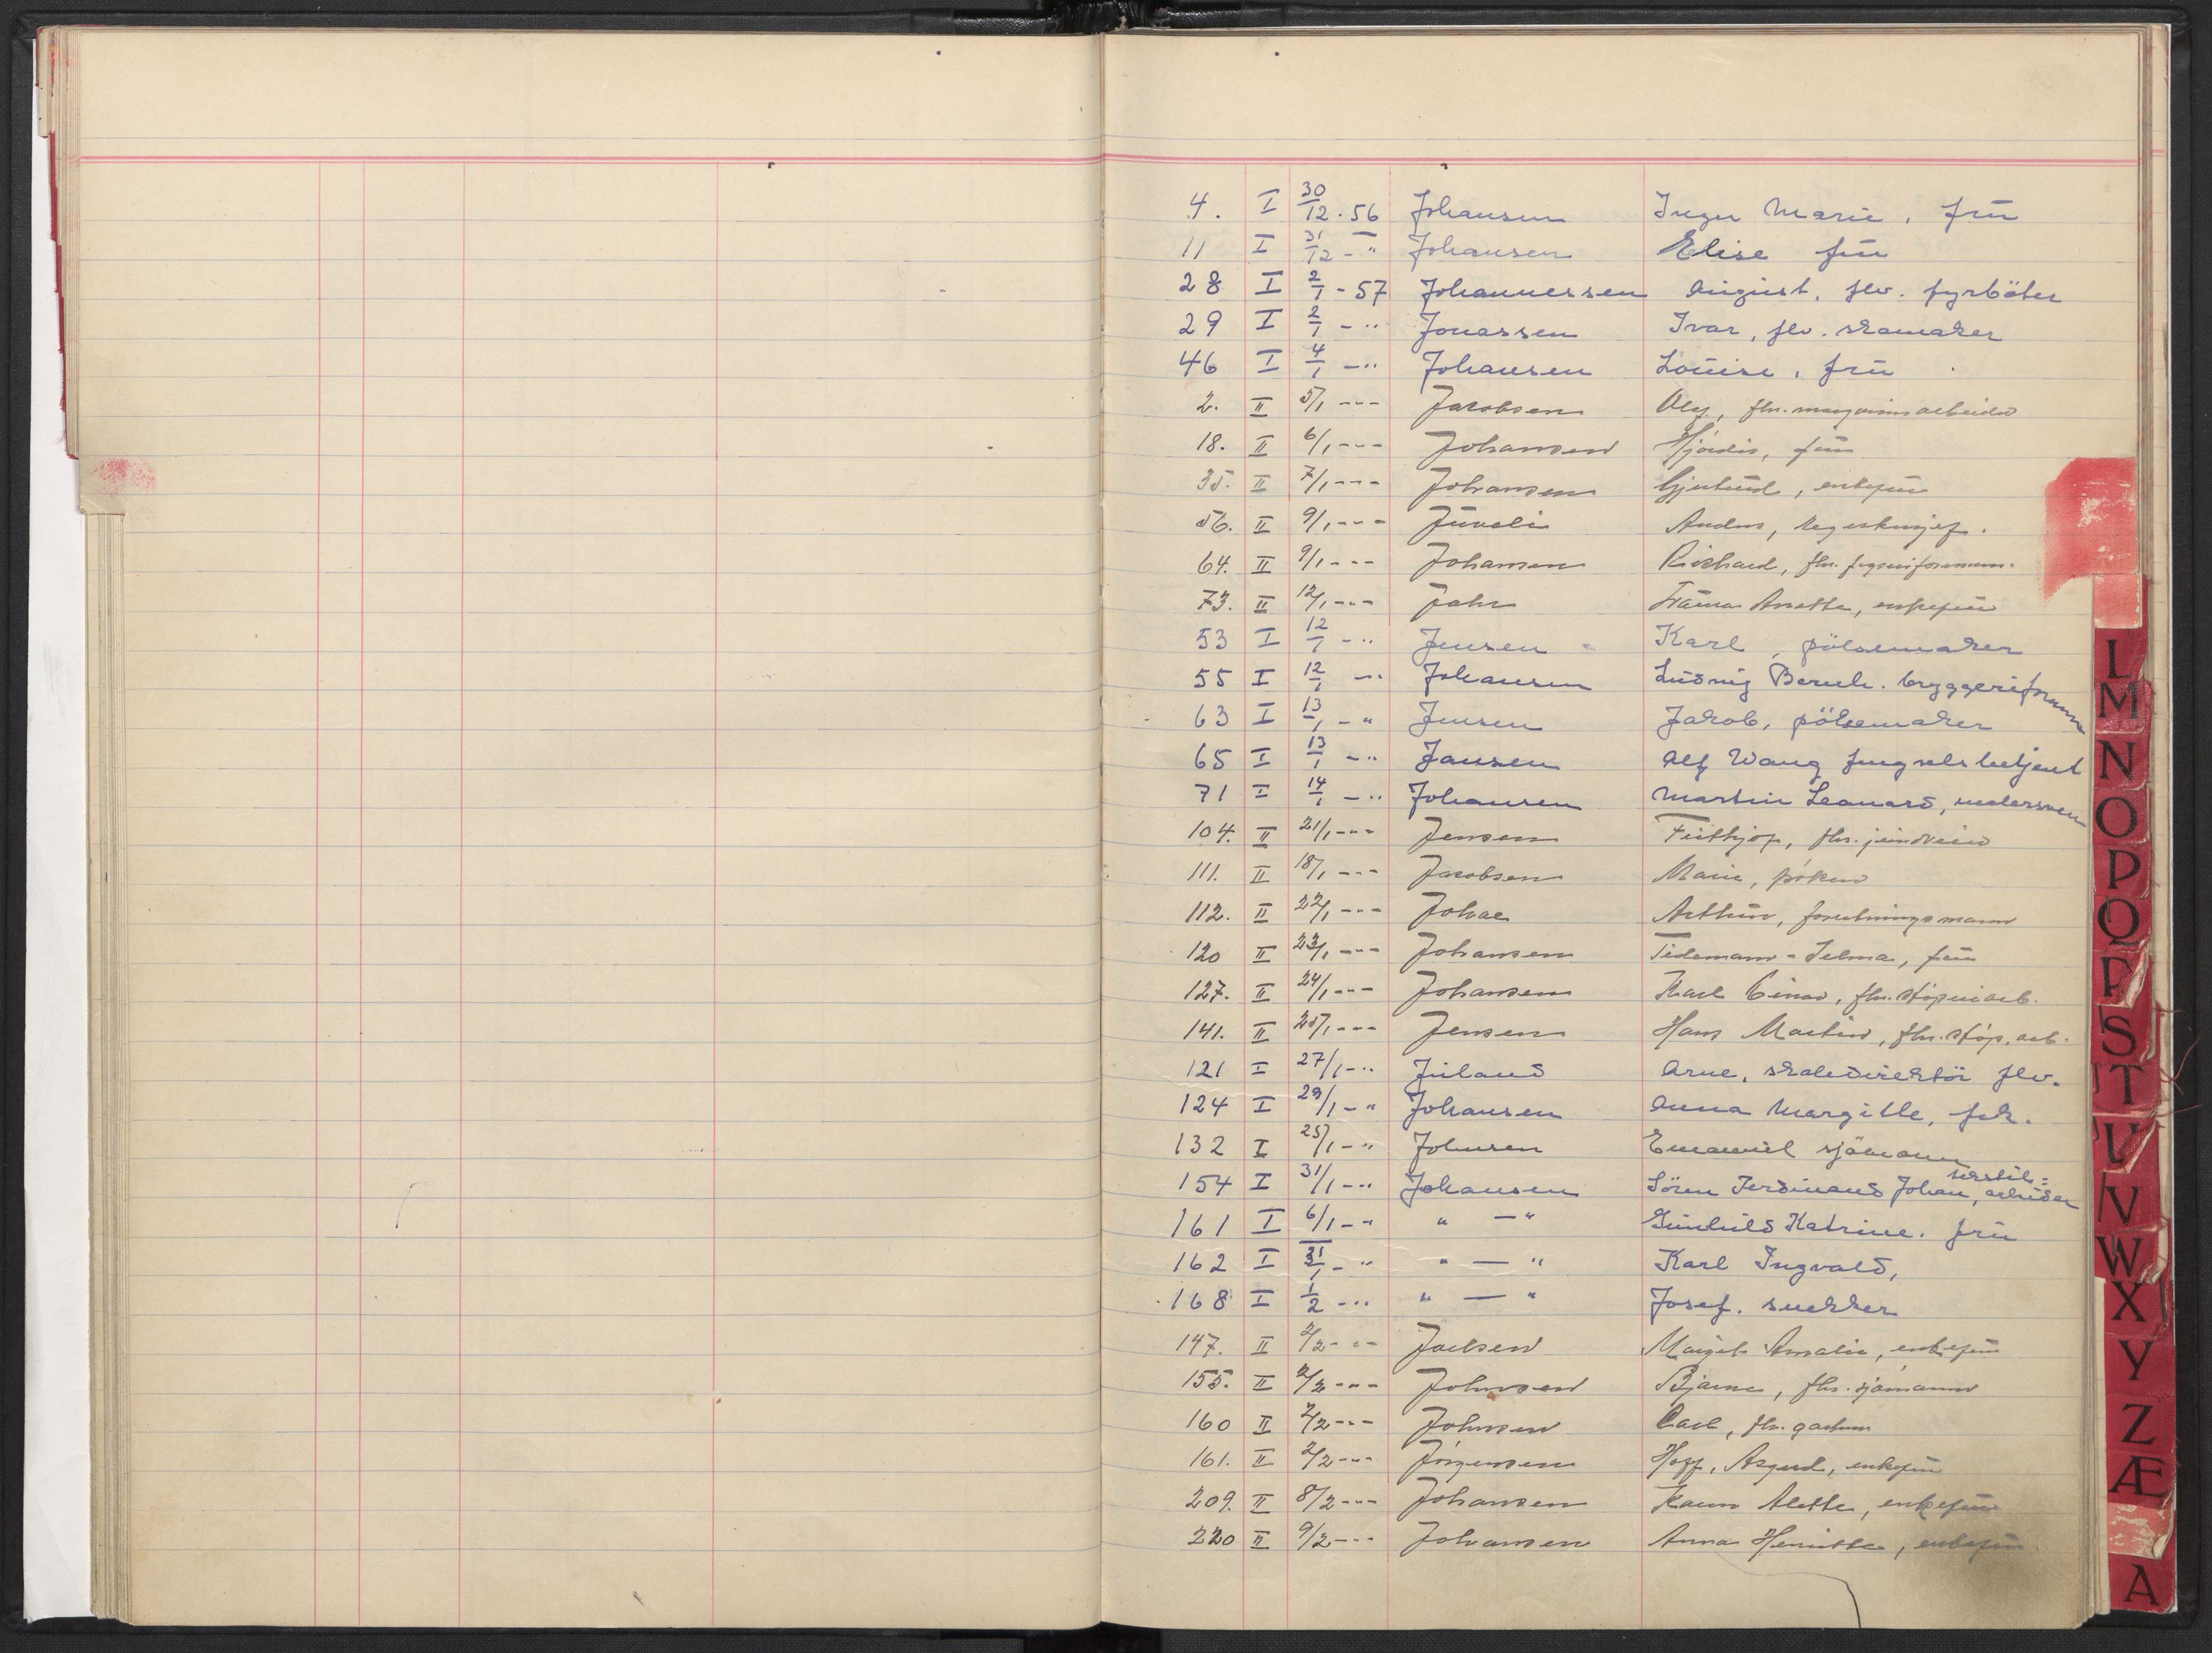 4. I 30/12 . 56 Johansen Inger Marie, frü
11 I 31/12 - " Johansen Elise frü
28 I 2/1 - 57 Johannessen August, flv. fyrböter
29 I 2/1 - " Jonassen Ivar, flv. skomaker
46 I 4/1 - " Johansen Louise, frü
2. II 5/1 - " - Jacobsen flv. margarinarbeider
18. II 6/1 - " - Johansen Hjördis, frü
35. II 7/1 - " - Johansen Gjertrud, enkefrü
56. II 9/1 - " - Jüveli Anders,
64. II 9/1 - " - Johansen Richard, flv.
73. II 12/1 - " - Jahr Anette, enkefrü
53 I 12/1 - " Jensen Karl, pölsemaker
55 I 12/1 - " Johansen Ludvig Bernh. bryggeriformann
63 I 13/1 - " Jensen Jakob, pölsemaker
65 I 13/1 - " Jansen Alf Wang fengselsbetjent
71 I 14/1 - " Johansen Martin Leonard, malersven
104. II 21/1 - " - Jensen Frithjof, flv. jerndreier
111. II 18/1 - " - Jacobsen Marie, fröken
112. II 22/1 - " - Johae Arthur, forretningsmann
120 II 23/1 - " - Johansen Tidemann - Selma, frü
127. II 24/1 - " - Johansen Karl Einar, flv. støperiarb.
141. II 25/1 - " - Jensen Hans Martin, flv. støp. arb.
121 I 27/1 - " Jüland Arne, skoledirektör flv.
124 I 29/1 - " Johansen Anna Margitte, frk.
132 I 25/1 - " Johnsen Emanuel sjömann
154 I 31/1 - " Johansen Sören Ferdinand Johan, tekstil= arbeider
161 I 6/1 - " " — " Günhild Katrine. frü
162 I 31/1 - " " — " Karl Ingvald,
168 I 1/2 - " " — " Josef. snekker
147. II 2/2 - " - Joelsen Margit Amalie, enkefrü
155. II 2/2 - " - Johnsen Bjarne, flv. sjømann
160 II 2/2 - " - Johnsen Carl, flv. gartner
161. II 2/2 - " - Jörgensen Hoff, Asgerd, enkefrü
209. II 8/2 - " - Johansen Karen Alette, enkefrü
220 II 9/2 - " - Johansen Anna Henriette, enkefrü
L
M
N
O
P
Q
R
S
T
U
V
W
X
Y
Z
Æ
A